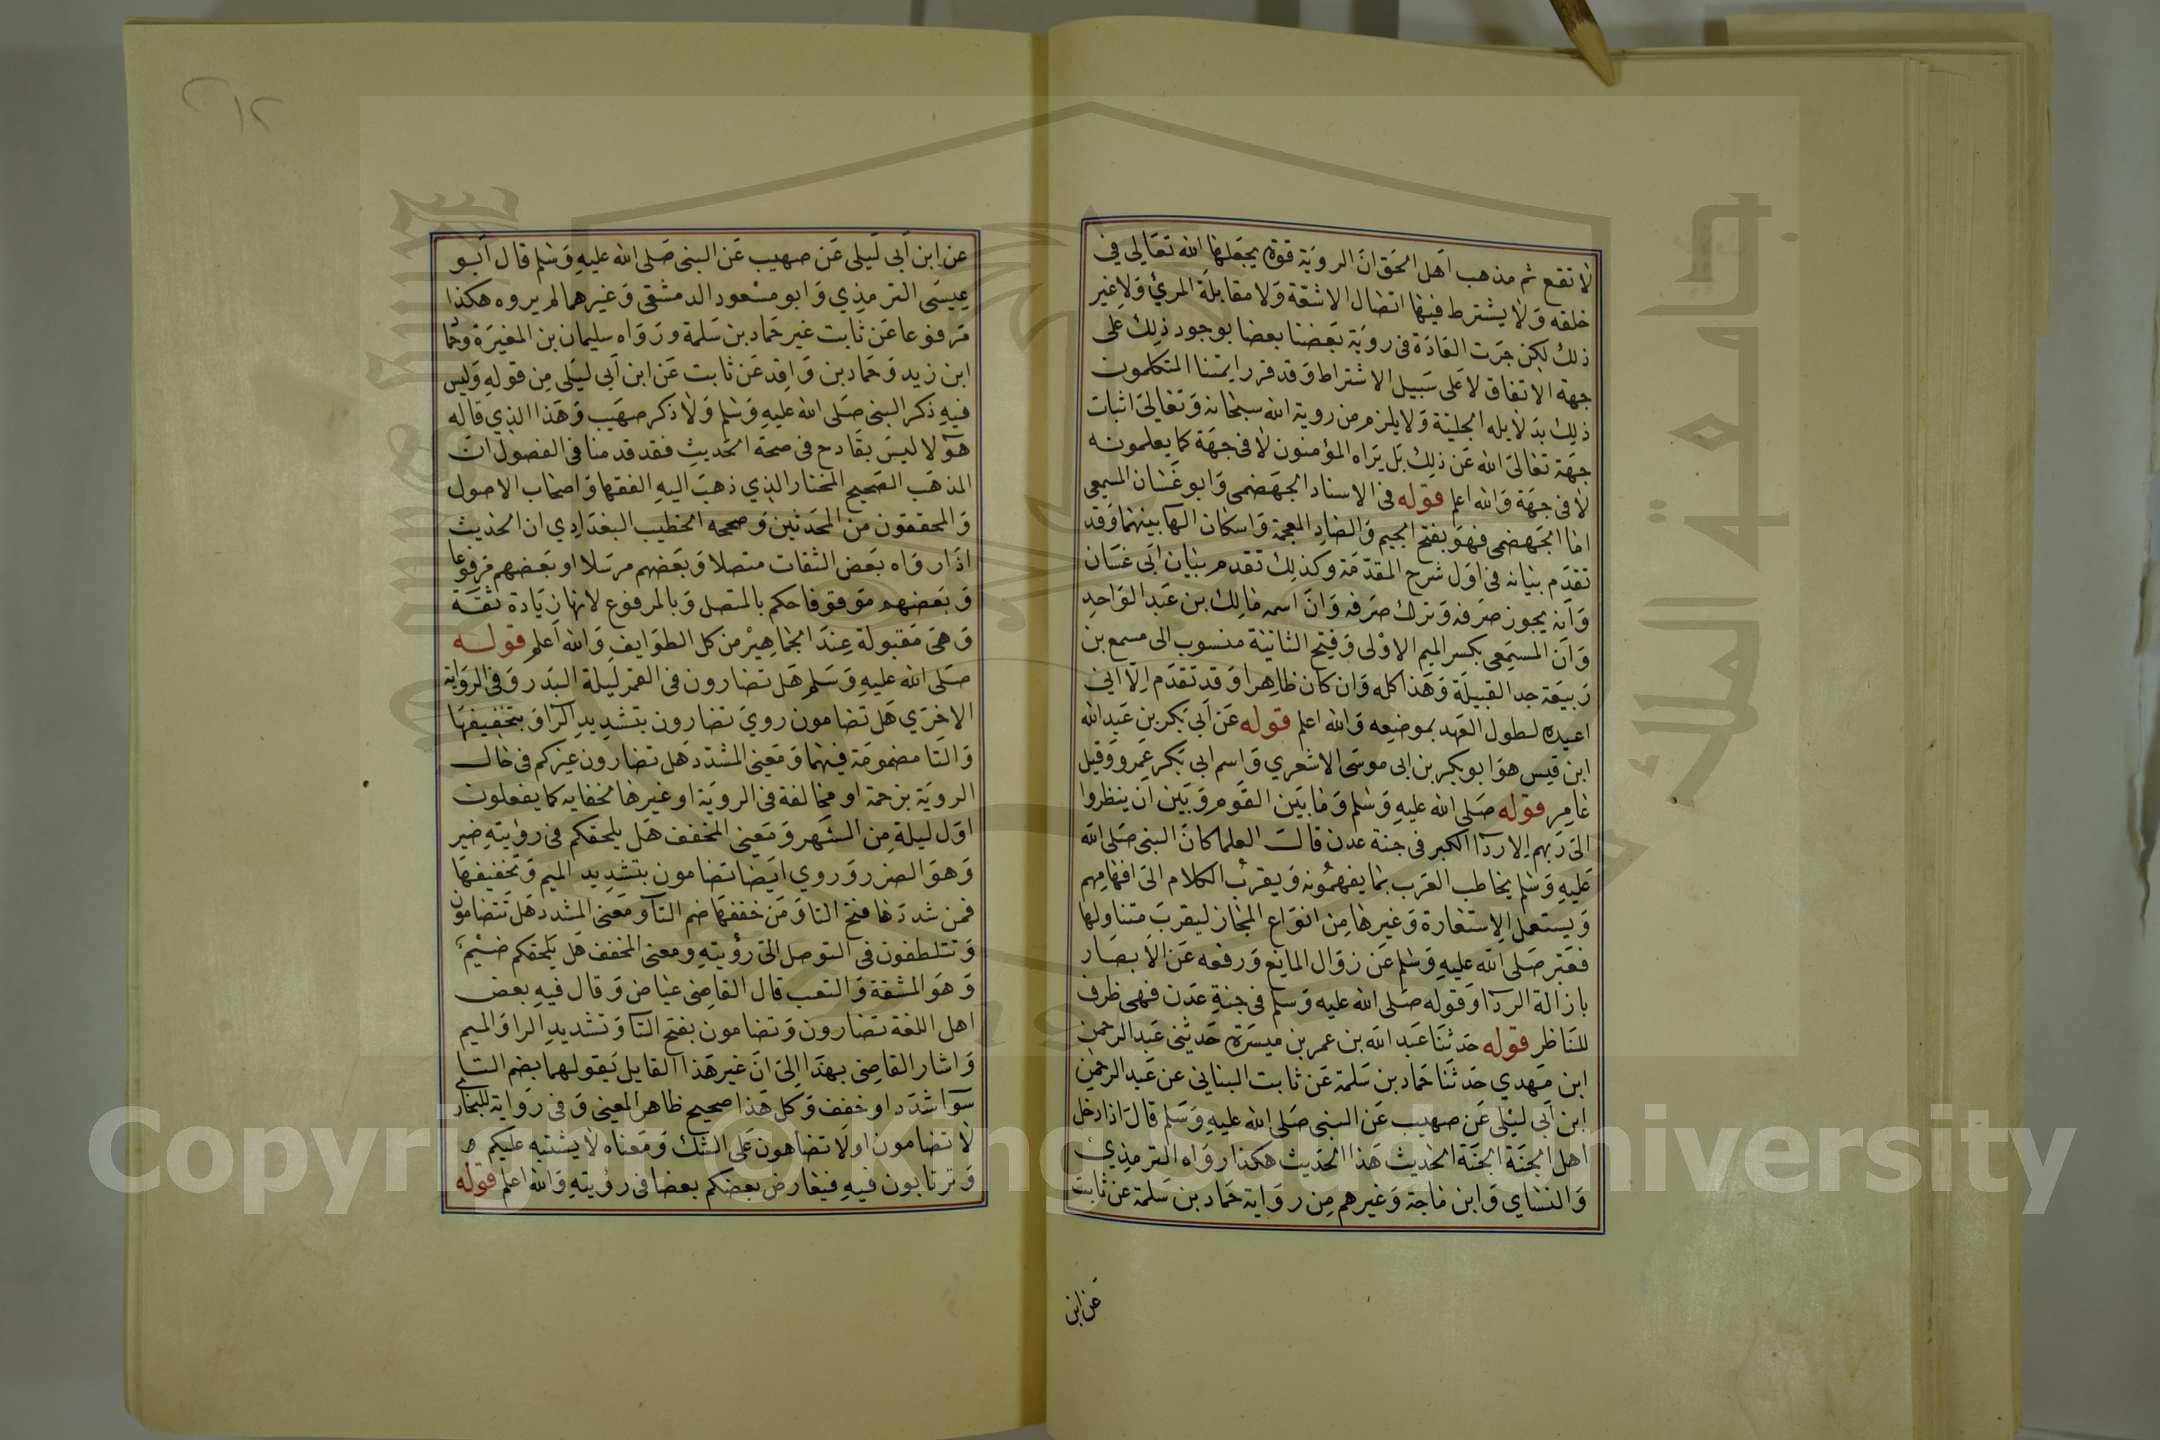 لا تقع ثم مذهب اهل الحق ان الروية قوة يجعلها الله تعالى في
خلقه ولا يشترط فيها اتصال الاشعة ولا مقابلة المرئ ولا غير
ذلك لكن جرت العادة فى روية بعضنا بعضا بوجود ذلك على
جهة الاتفاق لا على سبيل الاشتراط وقد قرر ايمتنا المتكلمون
ذلك بدلايله الجلية ولا يلزم من روية الله سبحانه وتعالى اثبات
جهة تعالى الله عن ذلك بل يراه المؤمنون لا فى جهة كما يعلمونه
لا فى جهة والله اعلم قوله فى الاسناد الجهضمى وابو غسان المسمعي
اما الجهضمى فهو بفتح الجيم والضاد المعجمة واسكان الها بينهما وقد
تقدم بيانه فى اول شرح المقدمة وكذلك تقدم بيان ابى غسان
وانه يجوز صرفه وترك صرفه وان اسمه مالك بن عبد الواحد
وان المسمعى بكسر الميم الاولى وفتح الثانية منسوب الى مسمع بن
ربيعة جد القبيلة وهذا كله وان كان ظاهرا وقد تقدم الا انى
اعيده لطول العهد بموضعه والله اعلم قوله عن ابى بكر بن عبد الله
ابن قيس هو ابو بكر بن ابى موسى الاشعري واسم ابى بكر عمرو وقيل
عامر قوله صلى الله عليه وسلم وما بين القوم وبين ان ينظروا
الى ربهم الا ردا الكبر فى جنة عدن قالت العلما كان النبى صلى الله
عليه وسلم يخاطب العرب بما يفهمونه ويقرب الكلام الى افهامهم
ويستعمل الاستعارة وغيرها من انواع المجاز ليقرب متناولها
فعبر صلى الله عليه وسلم عن زوال المانع ورفعه عن الابصار
بازالة الردا وقوله صلى الله عليه وسلم فى جنة عدن فهى ظرف
للناظر قوله حدثنا عبد الله بن عمر بن ميسرة حدثنى عبد الرحمن
ابن مهدي حدثنا حماد بن سلمة عن ثابت البناني عن عبد الرحمن
ابن ابى ليلى عن صهيب عن النبى صلى الله عليه وسلم قال اذا دخل
اهل الجنة الجنة الحديث هذا الحديث هكذا رواه الترمذي
والنساي وابن ماجة وغيرهم من رواية حماد بن سلمة عن ثابت
عن ابن
٢١٢
عن ابن ابى ليلى عن صهيب عن النبى صلى الله عليه وسلم قال ابو
عيسى الترمذي وابو مسعود الدمشقى وغيرهما لم يروه هكذا
مرفوعا عن ثابت غير حماد بن سلمة ورواه سليمان بن المغيرة وحما
ابن زيد وحماد بن واقد عن ثابت عن ابن ابى ليلى من قوله وليس
فيه ذكر النبى صلى الله عليه وسلم ولا ذكر صهيب وهذا الذي قاله
هولا ليس بقادح فى صحة الحديث فقد قدمنا فى الفصول ان
المذهب الصحيح المختار الذي ذهب اليه الفقها واصحاب الاصول
والمحققون من المحدثين وصححه الخطيب البغدادي ان الحديث
اذا رواه بعض الثقات متصلا وبعضهم مرسلا او بعضهم مرفوعا
وبعضهم موقوفا حكم بالمتصل وبالمرفوع لانها زيادة ثقة
وهى مقبولة عند الجماهير من كل الطوايف والله اعلم قوله
صلى الله عليه وسلم هل تضارون فى القمر ليلة البدر وفى الرواية
الاخري هل تضامون روي تضارون بتشديد الرا وبتخفيفها
والتا مضمومة فيهما ومعنى المشدد هل تضارون غيركم فى حال
الروية بزحمة او مخالفة فى الروية او غيرها لخفايه كما يفعلون
اول ليلة من الشهر ومعنى المخفف هل يلحقكم فى رؤيته ضير
وهو الضرر وروي ايضا تضامون بتشديد الميم وتخفيفها
فمن شددها فتح التا ومن خففها ضم التا ومعنى المشدد هل تتضامون
وتتلطفون فى التوصل الى رؤيته ومعنى المخفف هل يلحقكم ضيم
وهو المشقة والتعب قال القاضى عياض وقال فيه بعض
اهل اللغة تضارون وتضامون بفتح التا وتشديد الرا والميم
واشار القاضى بهذا الى ان غير هذا القايل يقولهما بضم التا
سوا شدد او خفف وكل هذا صحيح ظاهر المعنى وفى رواية للبخاري
لا تضامون او لا تضاهون على الشك ومعناه لا يشتبه عليكم
وترتابون فيه فيعارض بعضكم بعضا فى رؤيته والله اعلم قوله
جامعة الملك سعود
Copyright © King Saud University